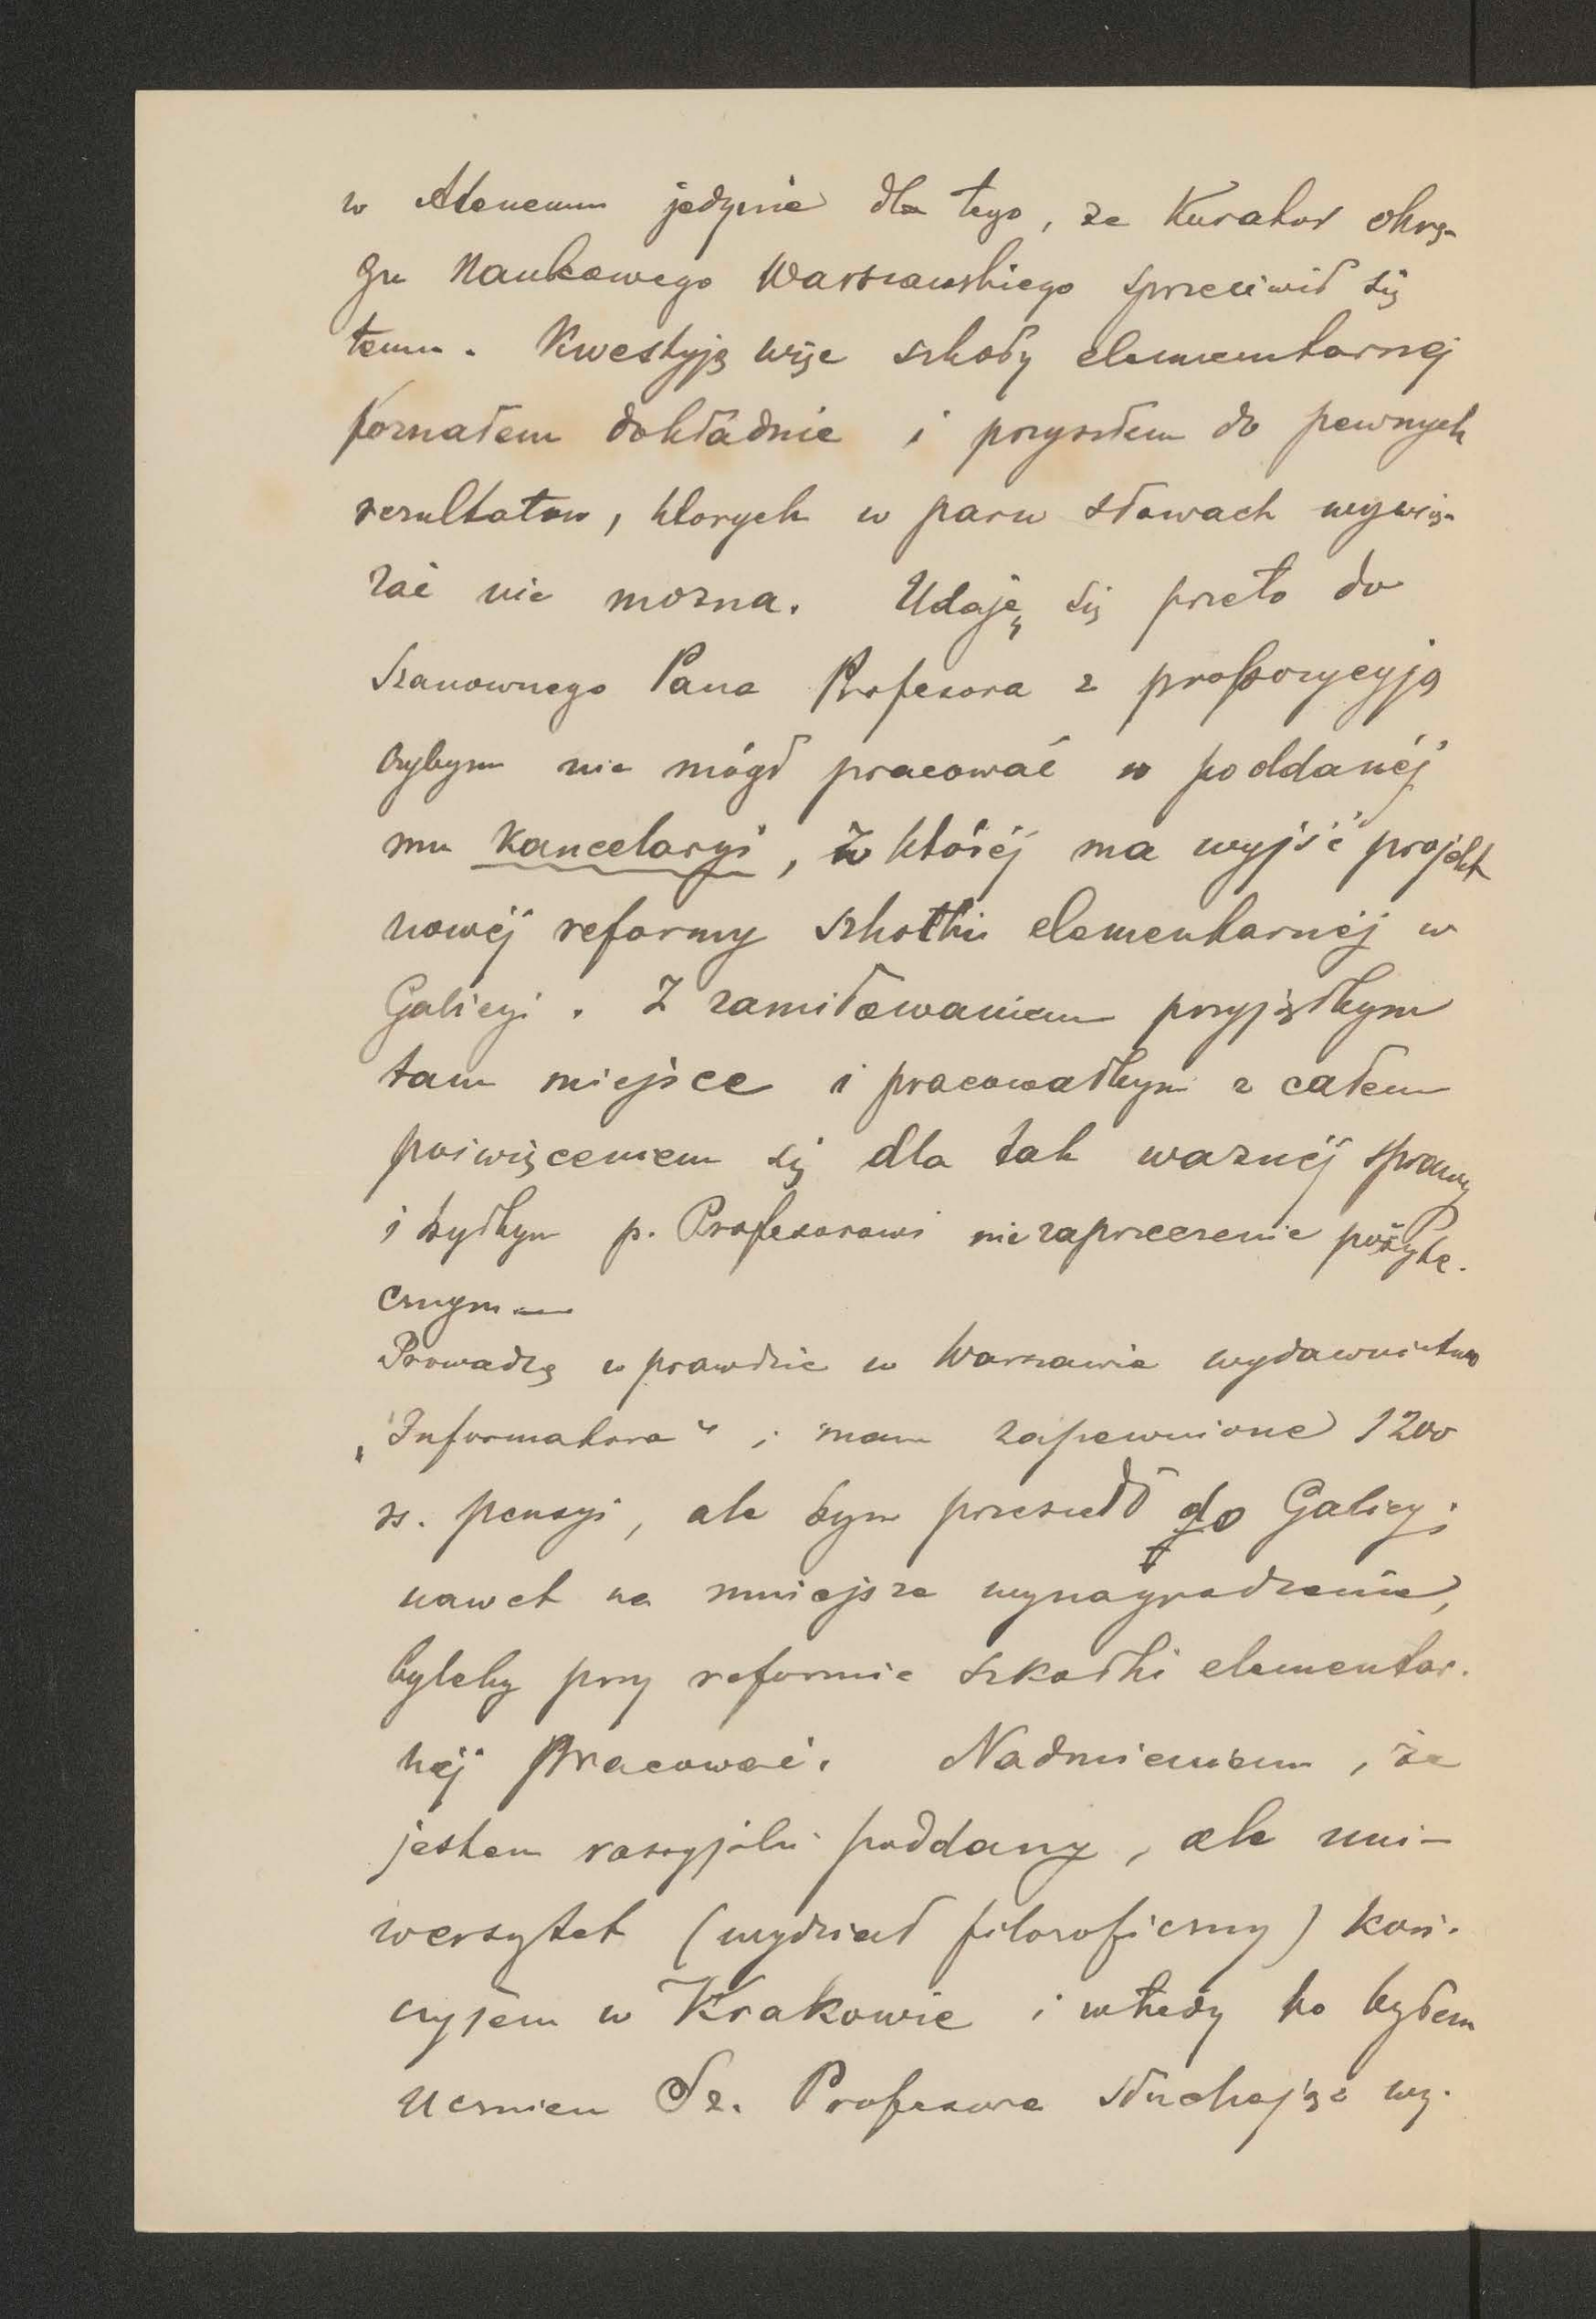 w Ateneum jedynie dla tego, ze Kurator okrę-
gu Naukowego Warszawskiego sprzeciwił się
temu. Kwestyję więc szkoły elementarnej
poznałem dokładnie i przyszłem do pewnych
rezultatow, ktorych w paru słowach wywią-
zać nie mozna. Udaję się przeto do
Szanownego Pana Profesora z propozycyją
czybym nie mógł pracować w poddanéj
mu kancelaryi, z któréj ma wyjść projekt
nowéj reformy szkołki elementarnéj w
Galicyi. Z zamiłowaniem przyjąłbym
tam miejsce i pracowałbym z całem
poświęceniem się dla tak waznéj sprawy
i byłbym p. Profesorowi niezaprzeczenie pożyte-
cznym. —
Prowadzę w prawdzie w Warszawie wydawnictwo
„Informatora“ i mam zapewnione 1200
rs. pensyi, ale bym przeszedł do Galicyi
nawet na mniejsze wynagrodzenie,
byleby przy reformie szkołki elementar-
néj pracować. Nadmieniam, że
jestem rossyjski poddany, ale uni-
wersytet (wydział filozoficzny) koń-
czyłem w Krakowie i wtedy to byłem
uczniem Sz. Profesora słuchając wy-